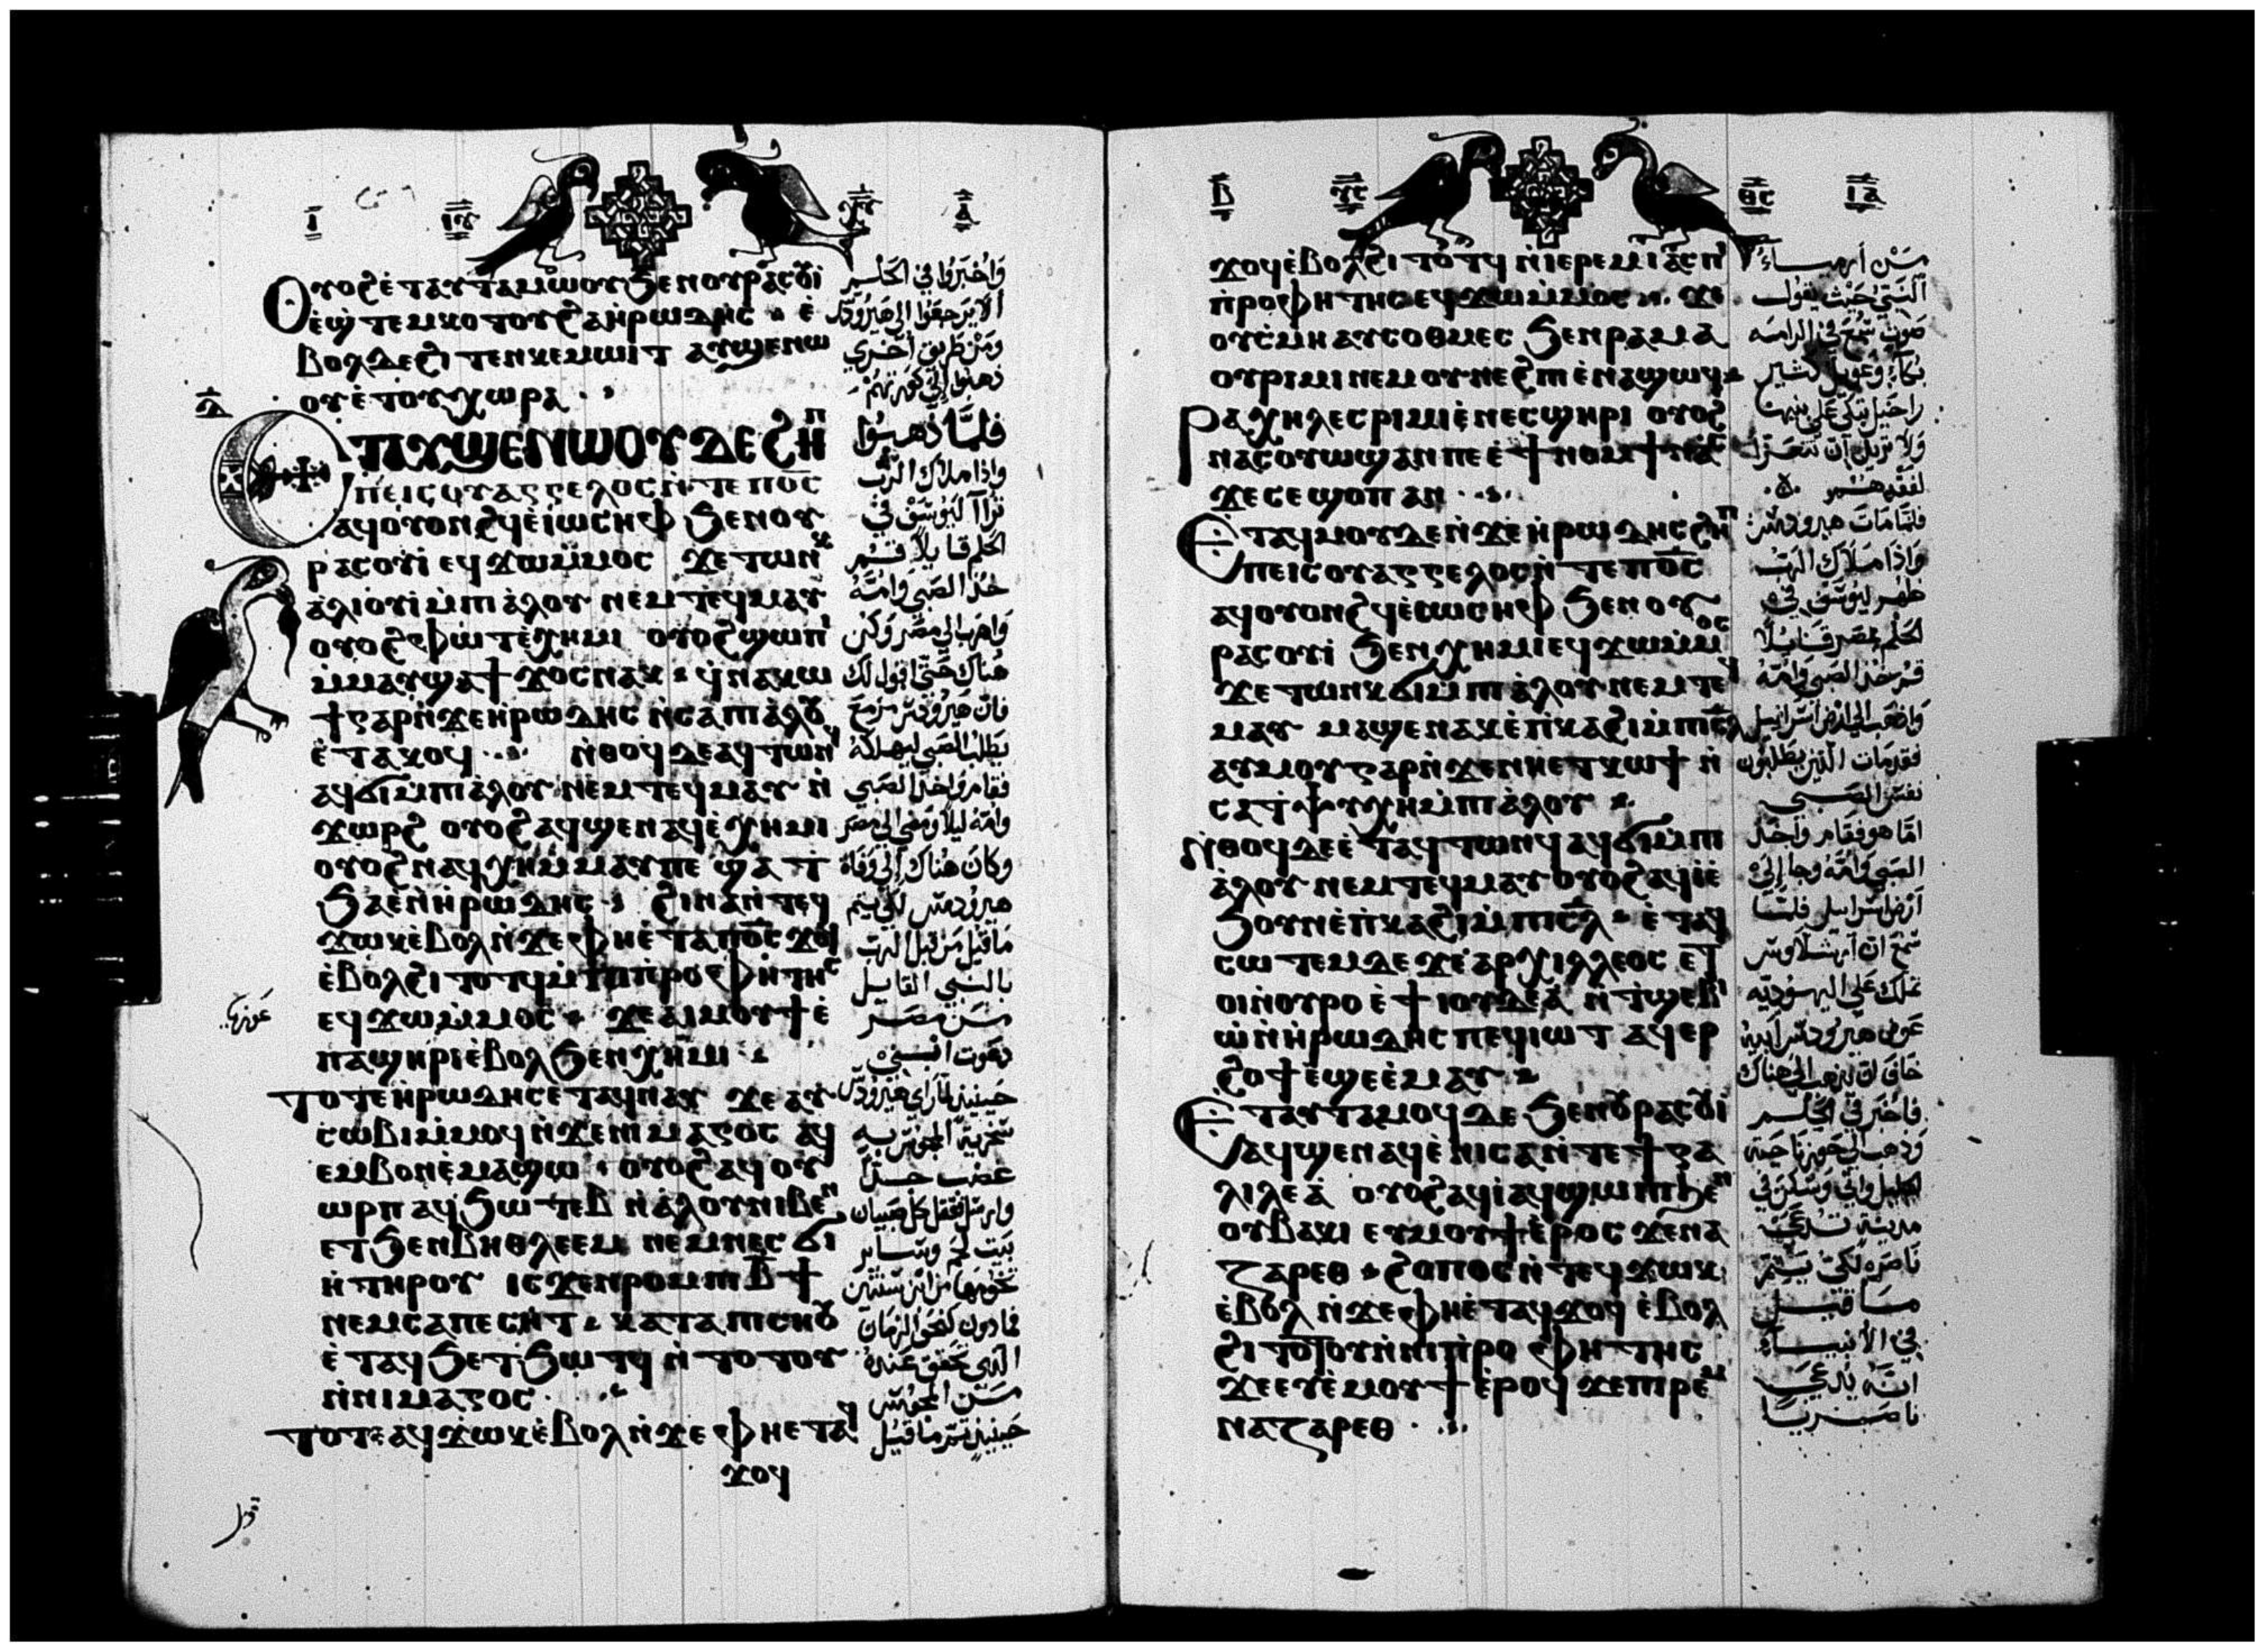 ⲓ̅ ⲓ̅ⲩ̅ ⲓ̅ⲥ̅ ⲁ̅
Ⲟⲩⲟϩ ⲉ̀ⲧⲁⲩⲧⲁⲙⲱⲟⲩ ϧⲉⲛⲟⲩⲣⲁⲥⲟⲩⲓ̀
ⲉ̀ϣⲧⲉⲙⲕⲟⲧⲟⲩ ϩⲁⲏ̀ⲣⲱⲇⲏⲥ ⲉ̀
ⲃⲟⲗⲇⲉϩⲓⲧⲉⲛⲕⲉⲙⲱⲓⲧ ⲁⲩϣⲉⲛⲱ
ⲟⲩⲉ̀ⲧⲟⲩⲭⲱⲣⲁ
ⲇ̅
Ⲉⲧⲁⲩϣⲉⲛⲱⲟⲩⲇⲉϩⲏⲡ
ⲡⲉⲓⲥⲟⲩⲁⲅⲅⲉⲗⲟⲥⲛ̀ⲧⲉⲡⲟ̅ⲥ̅
ⲁϥⲟⲩⲟⲛϩϥⲉ̀ⲓⲱⲥⲏⲫ ϧⲉⲛⲟⲩ
ⲣⲁⲥⲟⲩⲓ̀ ⲉϥϫⲱⲙ̀ⲙⲟⲥ ϫⲉⲧⲱⲛⲕ
ⲁ̀ⲗⲓⲟⲩⲓ̀ⲙ̀ⲡⲓⲁ̀ⲗⲟⲩ ⲛⲉⲙⲧⲉϥⲙⲁⲩ
ⲟⲩⲟϩⲫⲱⲧⲉ̀ⲭⲏⲙⲓ ⲟⲩⲟϩϣⲱⲡⲓ
ⲙ̀ⲙⲁⲩϣⲁϯϫⲟⲥⲛⲁⲕ ϥ̀ⲛⲁⲕⲱ
ϯⲅⲁⲣⲛ̀ϫⲉⲏ̀ⲣⲱⲇⲏⲥ ⲛ̀ⲥⲁⲡⲓⲁ̀ⲗⲟⲩ
ⲉ̀ⲧⲁⲕⲟϥ ⲛ̀ⲑⲟϥⲇⲉⲁϥⲧⲱⲛϥ
ⲁϥϭⲓⲙ̀ⲡⲓⲁ̀ⲗⲟⲩ ⲛⲉⲙⲧⲉϥⲙⲁⲩ ⲛ̀
ϫⲱⲣϩ ⲟⲩⲟϩⲁϥϣⲉⲛⲁϥⲉ̀ⲭⲏⲙⲓ
ⲟⲩⲟϩⲛⲁϥⲭⲏⲙ̀ⲙⲁⲩⲡⲉ ϣⲁⲧ̀
ϧⲁⲉ̀ⲛ̀ⲏ̀ⲣⲱⲇⲏⲥ ϩⲓⲛⲁⲛ̀ⲧⲉϥ
ϫⲱⲕⲉ̀ⲃⲟⲗⲛ̀ϫⲉⲫⲏⲉ̀ⲧⲁⲡⲟ̅ⲥ̅ϫⲟϥ
ⲉ̀ⲃⲟⲗϩⲓⲧⲟⲧϥⲙ̀ⲡⲓⲡⲣⲟⲫⲏⲧⲏⲥ
ⲉϥϫⲱⲙ̀ⲙⲟⲥ ϫⲉⲁⲓⲙⲟⲩϯⲉ̀
ⲡⲁϣⲏⲣⲓⲉ̀ⲃⲟⲗϧⲉⲛⲭⲏⲙⲓ
ⲧⲟⲧⲉⲏ̀ⲣⲱⲇⲏⲥⲉ̀ⲧⲁϥⲛⲁⲩ ϫⲉⲁⲩ
ⲥⲱⲃⲓⲙ̀ⲙⲟϥⲛ̀ϫⲉⲛⲓⲙⲁⲅⲟⲥ ⲁϥ
ⲉⲙⲃⲟⲛⲉ̀ⲙⲁϣⲱ ⲟⲩⲟϩⲁϥⲟⲩ
ⲱⲣⲡ ⲁϥϧⲱⲧⲉⲃ ⲛ̀ⲁ̀ⲗⲟⲩⲛⲓⲃⲉⲛ
ⲉⲧϧⲉⲛⲃⲏⲑⲗⲉⲉⲙ ⲛⲉⲙⲛⲉⲥϭⲓ
ⲏ̀ⲧⲏⲣⲟⲩ ⲓⲥϫⲉⲛⲣⲟⲙⲡⲓⲃ̅ϯ
ⲛⲉⲙⲥⲁⲡⲉⲥⲏⲧ ⲕⲁⲧⲁⲡⲓⲥⲏⲟⲩ
ⲉ̀ⲧⲁϥϧⲉⲧϧⲱⲧϥ ⲛ̀ⲧⲟⲧⲟⲩ
ⲛ̀ⲛⲓⲙⲁⲅⲟⲥ
ⲧⲟⲧⲉⲁϥϫⲱⲕⲉ̀ⲃⲟⲗⲛ̀ϫⲉⲫⲏⲉⲧⲁϥ
ϫⲟϥ
واخبروا في الحلم
الا يرجعوا الي هيرودس
ومن طريق اخري
ذهبوا الي كورتهم
فلما ذهبوا
واذا ملاك الرب
تراآ ليوسف في
الحلم قايلا قم
خذ الصبي وامه
واهرب الي مصر وكن
هناك حتي اقول لك
فان هيرودس مزمع
يطلب الصبي ليهلكه
فقام واخذ الصبي
وامه ليلا ومضي الي مصر
وكان هناك الي وفاة
هيرودس لكي يتم
ما قيل من قبل الرب
بالنبي القايل
من مصر
دعوت ابني
حينيذ لما راي هيرودس
سخرية المجوس به
غضب جدا
وارسل فقتل كل صبيان
بيت لحم وساير
تخومها من ابن سنتين
فما دون كنحو الزمان
الذي تحقق عنده
من المجوس
حينيذ تم ما قيل
ⲃ̅ ⲩ̅ⲥ̅ ⲑ̅ⲥ̅ ⲓ̅ⲁ̅
ϫⲟϥⲉ̀ⲃⲟⲗϩⲓⲧⲟⲧϥ ⲛ̀ⲓⲉⲣⲉⲙⲓⲁⲥⲡⲓ
ⲡ̀ⲣⲟⲫⲏⲧⲏⲥⲉϥϫⲱⲙ̀ⲙⲟⲥ ϫⲉ
ⲟⲩⲥ̀ⲙⲏⲁⲩⲥⲟⲑⲙⲉⲥ ϧⲉⲛⲣⲁⲙⲁ
ⲟⲩⲣⲓⲙⲓⲛⲉⲙⲟⲩⲛⲉϩⲡⲓⲉ̀ⲛⲁϣⲱϥ
ⲣⲁⲭⲏⲗⲉⲥⲣⲓⲙⲓⲉ̀ⲛⲉⲥϣⲏⲣⲓ ⲟⲩⲟϩ
ⲛⲁⲥⲟⲩⲱϣⲁⲛⲡⲉⲉ̀ϯⲛⲟⲙϯⲛⲁⲥ
ϫⲉⲥⲉϣⲟⲡⲁⲛ
Ⲉ̀ⲧⲁϥⲙⲟⲩⲇⲉⲛ̀ϫⲉⲏ̀ⲣⲱⲇⲏⲥϩⲏⲡ
ⲡⲉⲓⲥⲟⲩⲁⲅⲅⲉⲗⲟⲥⲛ̀ⲧⲉⲡⲟ̅ⲥ̅
ⲁϥⲟⲩⲟⲛϩϥⲉ̀ⲓⲱⲥⲏⲫ ϧⲉⲛⲟⲩ
ⲣⲁⲥⲟⲩⲓ̀ ϧⲉⲛⲭⲏⲙⲓⲉϥϫⲱⲙ̀ⲙⲟⲥ
ϫⲉⲧⲱⲛⲕϭⲓⲙ̀ⲡⲓⲁ̀ⲗⲟⲩⲛⲉⲙⲧⲉϥ
ⲙⲁⲩ ⲙⲁϣⲉⲛⲁⲕⲉ̀ⲡ̀ⲕⲁϩⲓⲙ̀ⲡⲓⲥ̅ⲗ̅
ⲁⲩⲙⲟⲩⲅⲁⲣⲛ̀ϫⲉⲛⲏⲉⲧⲕⲱϯ ⲛ̀
ⲥⲁϯⲯⲩⲭⲏⲙ̀ⲡⲓⲁ̀ⲗⲟⲩ
ⲛ̀ⲑⲟϥⲇⲉⲉ̀ⲧⲁϥⲧⲱⲛϥ ⲁϥϭⲓⲙ̀ⲡⲓ
ⲁ̀ⲗⲟⲩ ⲛⲉⲙⲧⲉϥⲙⲁⲩⲟⲩⲟϩⲁϥⲓ̀ⲉ̀
ϧⲟⲩⲛⲉ̀ⲡ̀ⲕⲁϩⲓⲙ̀ⲡⲓⲥ̅ⲗ̅ ⲉ̀ⲧⲁϥ
ⲥⲱⲧⲉⲙⲇⲉ ϫⲉⲁⲣⲭⲓⲗⲗⲉⲟⲥ ⲉⲧ
ⲟⲓⲛ̀ⲟⲩⲣⲟ ⲉ̀ϯⲓⲟⲩⲇⲉⲁ̀ ⲛ̀ⲧ̀ϣⲉⲃⲓ
ⲱ̀ⲛ̀ⲏ̀ⲣⲱⲇⲏⲥⲡⲉϥⲓⲱⲧ ⲁϥⲉⲣ
ϩⲟϯⲉ̀ϣⲉⲉ̀ⲙⲁⲩ
Ⲉ̀ⲧⲁⲩⲧⲁⲙⲟϥⲇⲉ ϧⲉⲛⲟⲩⲣⲁⲥⲟⲩⲓ̀
ⲁϥϣⲉⲛⲁϥⲉ̀ⲛⲓⲥⲁⲛ̀ⲧⲉϯⲅⲁ
ⲗⲓⲗⲉⲁ̀ ⲟⲩⲟϩⲁϥⲓ̀ⲁϥϣⲱⲡⲓϧⲉⲛ
ⲟⲩⲃⲁⲕⲓ ⲉⲩⲙⲟⲩϯⲉ̀ⲣⲟⲥ ϫⲉⲛⲁ
ⲍⲁⲣⲉⲑ ϩⲟⲡⲱⲥⲛ̀ⲧⲉϥϫⲱⲕ
ⲉ̀ⲃⲟⲗ ⲛ̀ϫⲉⲫⲏⲉ̀ⲧⲁϥϫⲟϥ ⲉ̀ⲃⲟⲗ
ϩⲓⲧⲟⲧⲟⲩⲛ̀ⲛⲓⲡ̀ⲣⲟⲫⲏⲧⲏⲥ
ϫⲉⲉⲩⲉ̀ⲙⲟⲩϯⲉ̀ⲣⲟϥ ϫⲉⲡⲓⲣⲉⲙ
ⲛⲁⲍⲁⲣⲉⲑ
من ارمياء
النبي حيث يقول
صوت سمع في الرامه
بكاء وعويل كثير
راحيل تبكي علي بنيها
ولا تريد ان تتعزا
لفقدهم
فلما مات هيرودس
واذا ملاك الرب
ظهر ليوسف في
الحلم بمصر قايلا
قم خذ الصبي وامه
واذهب الي ارض اسرايل
فقد مات الذين يطلبون
نفس الصبي
اما هو فقام واخذ
الصبي وامه وجا الي
ارض اسرايل فلما
سمع ان ارشلاوس
ملك علي اليهوديه
عوض هيرودس ابيه
خاف ان يذهب الي هناك
فاخبر في الحلم
وذهب الي ناحية
الجليل واتي وسكن في
مدينة تدعي
ناصره لكي يتم
ما قيل
في الانبياء
انه يدعي
ناصريا